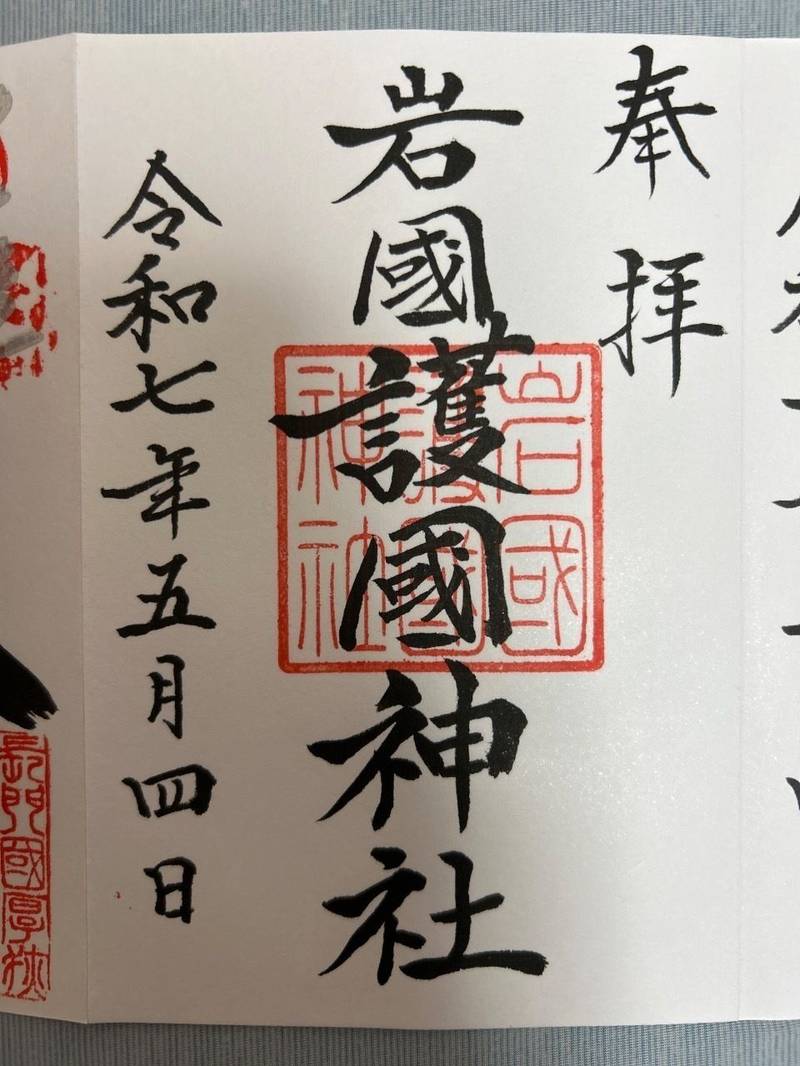 奉拝
岩國護國神社
岩國護國神社
令和七年五月四日
長門國厚狭